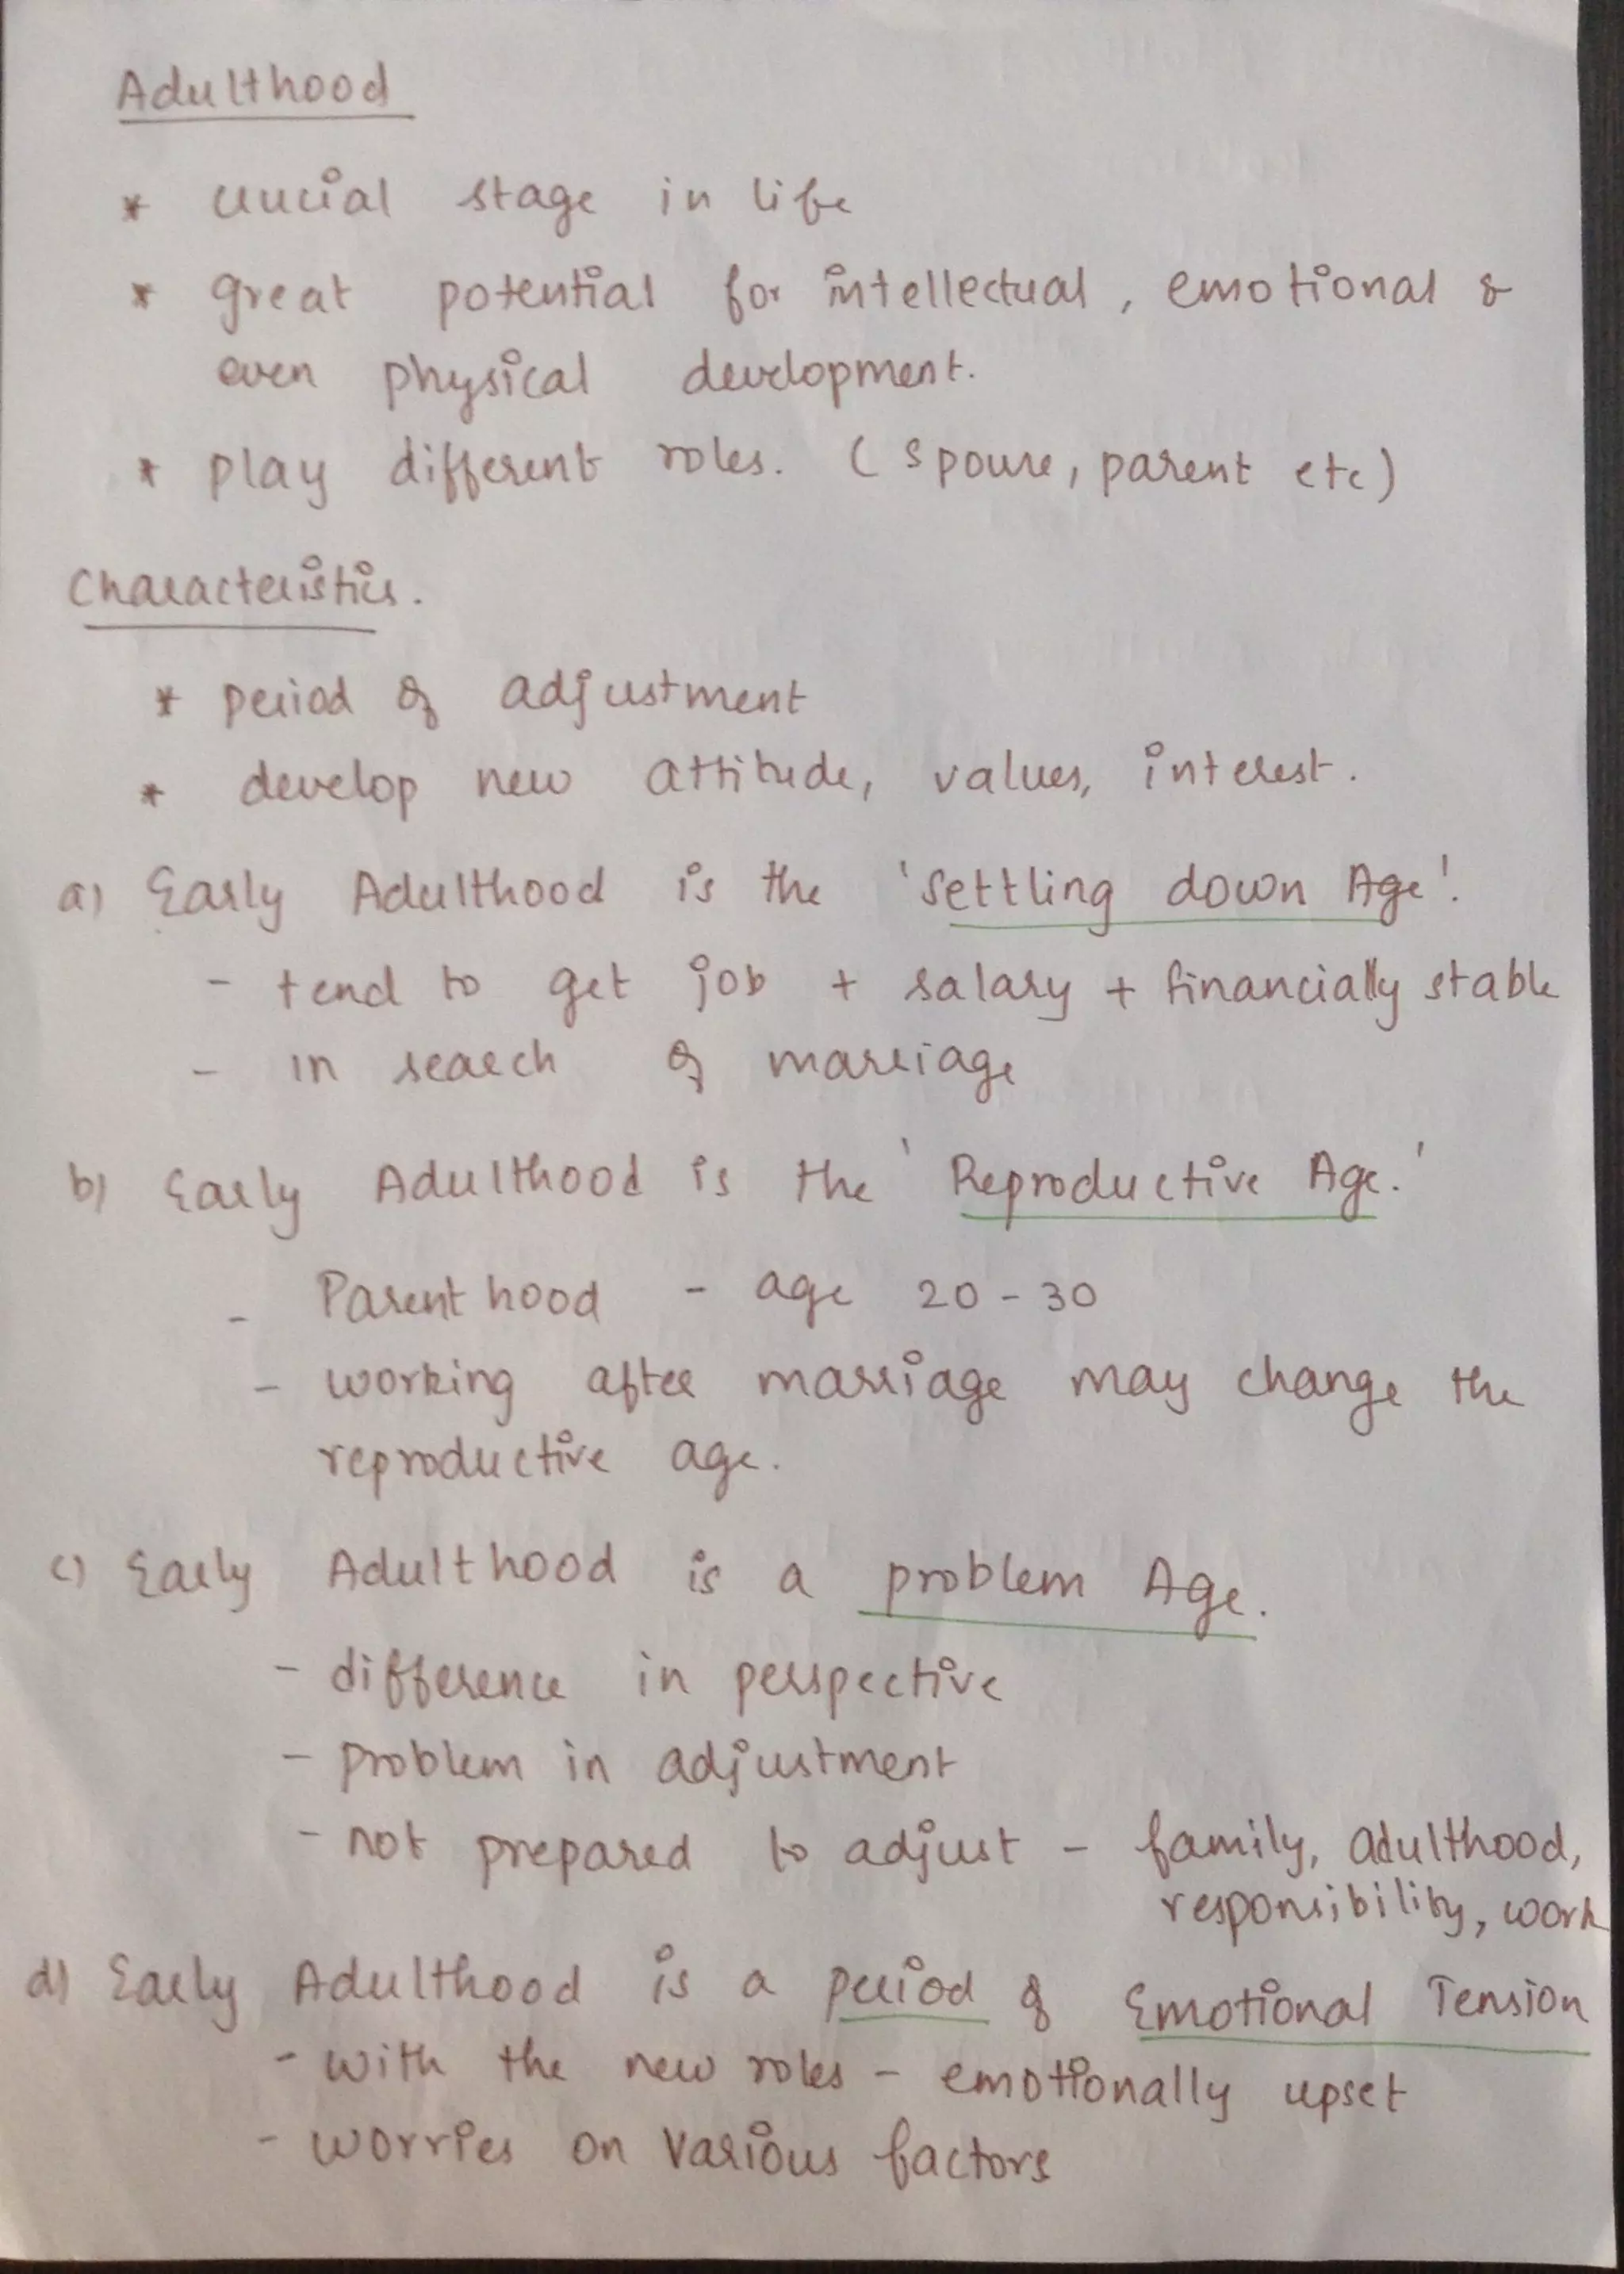 Adulthood
* crucial stage in life
* great potential for intellectual, emotional &
even physical development.
* play different roles. (spouse, parent etc)
Characteristics.
* period of adjustment
* develop new attitude, values, interest.
a) Early Adulthood is the 'settling down Age'.
- tend to get job + salary + financially stable
- in search of marriage
b) Early Adulthood is the 'Reproductive Age.'
- Parenthood - age 20-30
- working after marriage may change the
reproductive age.
c) Early Adulthood is a problem Age.
- difference in perspective
- problem in adjustment
- not prepared to adjust - family, adulthood,
responsibility, work
d) Early Adulthood is a period of Emotional Tension
- with the new roles - emotionally upset
- worries on various factors